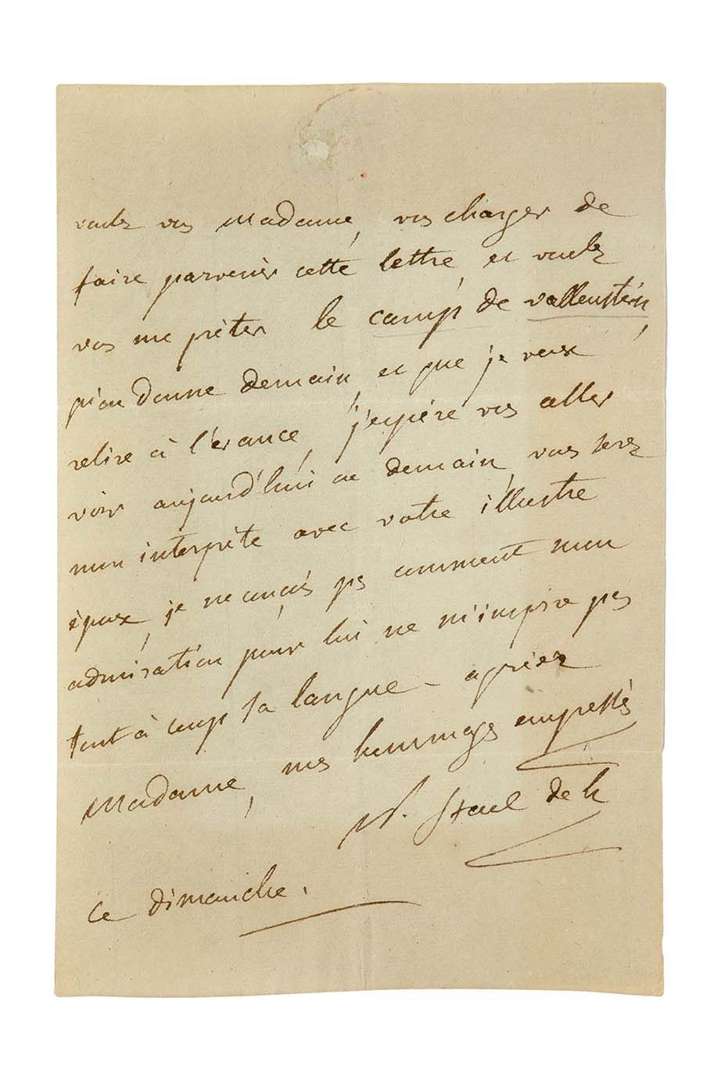 voulez vous Madame, vous charger de
faire parvenir cette lettre, et voulez
vous me prêter le camp de vallenstein
qu'on donne demain, et que je veux
relire à l'avance, j'espére vous aller
voir aujourd'hui ou demain vous serez
mon interprête avec votre illustre
époux, je ne conçois pas comment mon
admiration pour lui ne m'inspire pas
tout à coup sa langue – agréez
Madame, mes hommages empressés
N. Stael de h
ce dimanche.